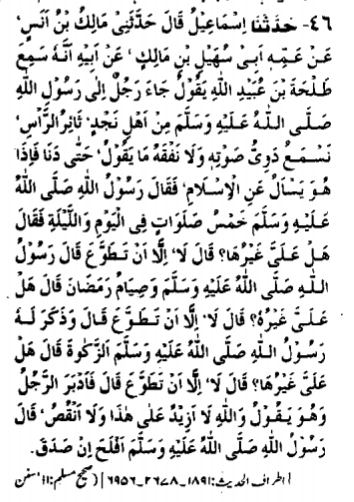 ٤٦- حَدَّثَنَا اِسْمَاعِيْلُ قَالَ حَدَّثَنِىْ مَالِكُ بْنُ اَنَسٍ،
عَنْ عَمِّهِ اَبِىْ سُهَيْلِ بْنِ مَالِكٍ، عَنْ اَبِيْهِ اَنَّهُ سَمِعَ
طَلْحَةَ بْنَ عُبَيْدِ اللهِ يَقُوْلُ جَاءَ رَجُلٌ اِلٰى رَسُوْلِ اللهِ
صَلَّى اللهُ عَلَيْهِ وَسَلَّمَ مِنْ اَهْلِ نَجْدٍ، ثَائِرُ الرَّأْسِ،
نَسْمَعُ دَوِىَّ صَوْتِهٖ وَلَا نَفْقَهُ مَا يَقُوْلُ، حَتّٰى دَنَا فَاِذَا
هُوَ يَسْاَلُ عَنِ الْاِسْلَامِ، فَقَالَ رَسُوْلُ اللهِ صَلَّى اللهُ
عَلَيْهِ وَسَلَّمَ خَمْسُ صَلَوَاتٍ فِى الْيَوْمِ وَاللَّيْلَةِ فَقَالَ
هَلْ عَلَىَّ غَيْرُهَا؟ قَالَ لَا، اِلَّا اَنْ تَطَوَّعَ قَالَ رَسُوْلُ
اللهِ صَلَّى اللهُ عَلَيْهِ وَسَلَّمَ وَصِيَامُ رَمَضَانَ قَالَ هَلْ
عَلَىَّ غَيْرُهُ؟ قَالَ لَا، اِلَّا اَنْ تَطَوَّعَ قَالَ وَذَكَرَ لَهُ
رَسُوْلُ اللهِ صَلَّى اللهُ عَلَيْهِ وَسَلَّمَ الزَّكٰوةَ قَالَ هَلْ
عَلَىَّ غَيْرُهَا؟ قَالَ لَا، اِلَّا اَنْ تَطَوَّعَ قَالَ فَاَدْبَرَ الرَّجُلُ
وَهُوَ يَقُوْلُ وَاللهِ لَا اَزِيْدُ عَلٰى هٰذَا وَلَا اَنْقُصُ، قَالَ
رَسُوْلُ اللهِ صَلَّى اللهُ عَلَيْهِ وَسَلَّمَ اَفْلَحَ اِنْ صَدَقَ.
[اطراف الحدیث: ۱۸۹۱-۲۶۷۸-۶۹۵۶] (صحیح مسلم: ۱۱، سنن